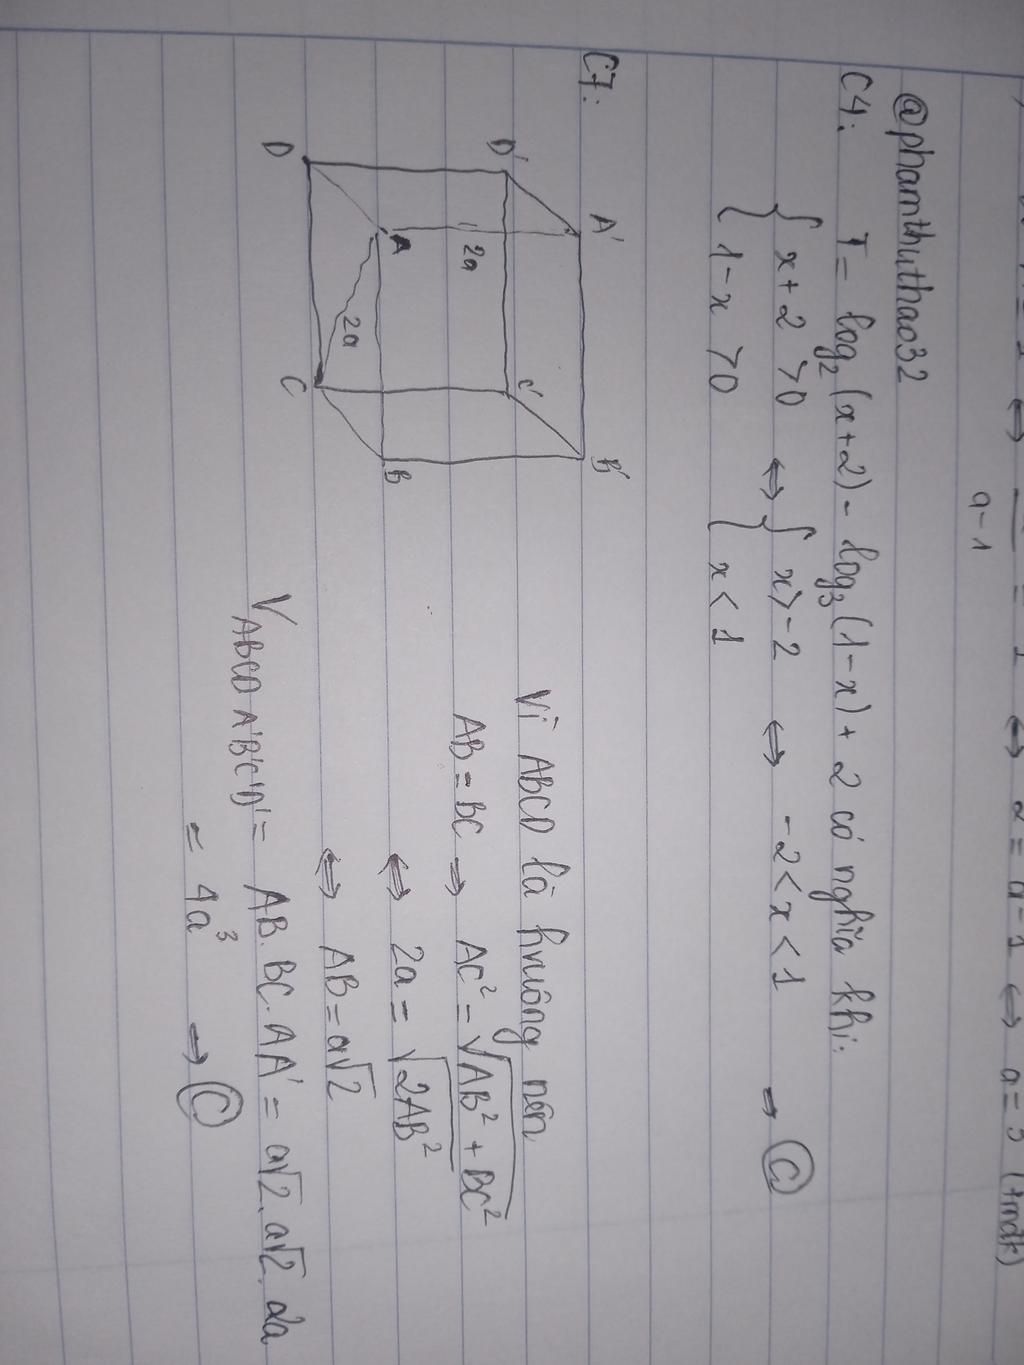 ⇔ = 1 ⇔ 2 = a-1 ⇔ a = 3 (tmđk)
a-1
@phamthuthao32
C4: T = log₂(x+2) - log₃(1-x) + 2 có nghĩa khi:
{ x+2 >0 ⇔ { x>-2 ⇔ -2<x<1 → C
{ 1-x >0 { x<1
C7:
A' B'
D' C'
2a
A B
2a
D C
Vì ABCD là hvuông nên
AB = BC → AC² = √(AB² + BC²)
⇔ 2a = √(2AB²)
⇔ AB = a√2
V ABCD A'B'C'D' = AB.BC.AA' = a√2.a√2.2a
= 4a³ → C